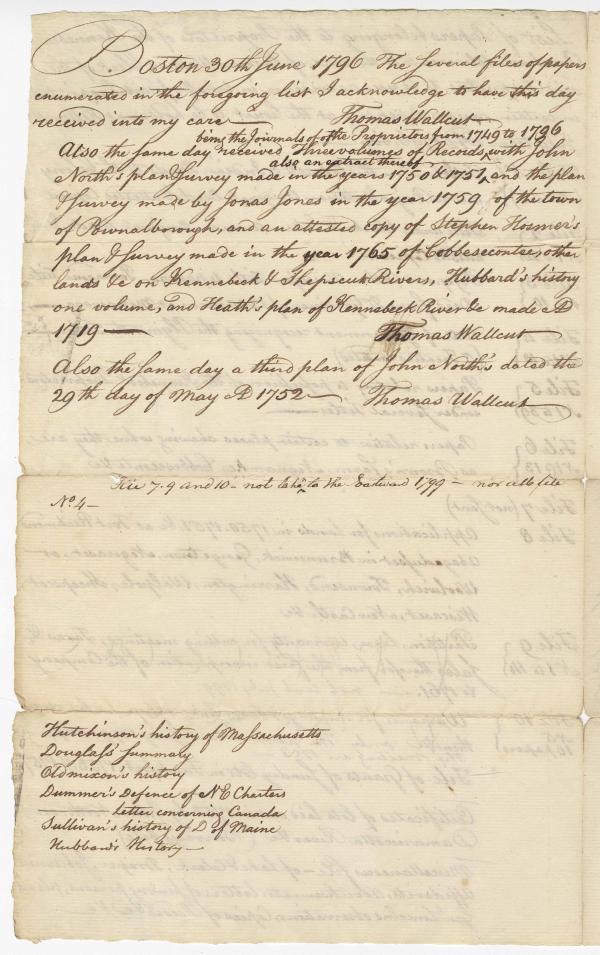 Boston 30th June 1796 The several files of papers
enumerated in the foregoing list I acknowledge to have this day
received into my care — Thomas Wallcut
being the Journals of the Proprietors from 1749 to 1796
Also the same day received Three volumes of Records, with John
also an extract thereof
North's plan & survey made in the years 1750 & 1751, and the plan
& survey made by Jonas Jones in the year 1759 of the town
of Pownalborough, and an attested copy of Stephen Hosmer's
plan & survey made in the year 1765 of Cobbesecontee, other
lands &c on Kennebeck & Shepscut Rivers, Hubbard's history
one volume, and Heath's plan of Kennebeck River &c made AD
1719 — Thomas Wallcut
Also the same day a third plan of John North's dated the
29th day of May AD 1752 — Thomas Wallcut
File 7. 9 and 10 — not taken to the Eastward 1799 — nor all file
No. 4 —
Hutchinson's history of Massachusetts
Douglass's Summary
Oldmixon's history
Dummer's Defence of NE Charters
— Letter concerning Canada
Sullivan's history of D of Maine
Hubbard's History —